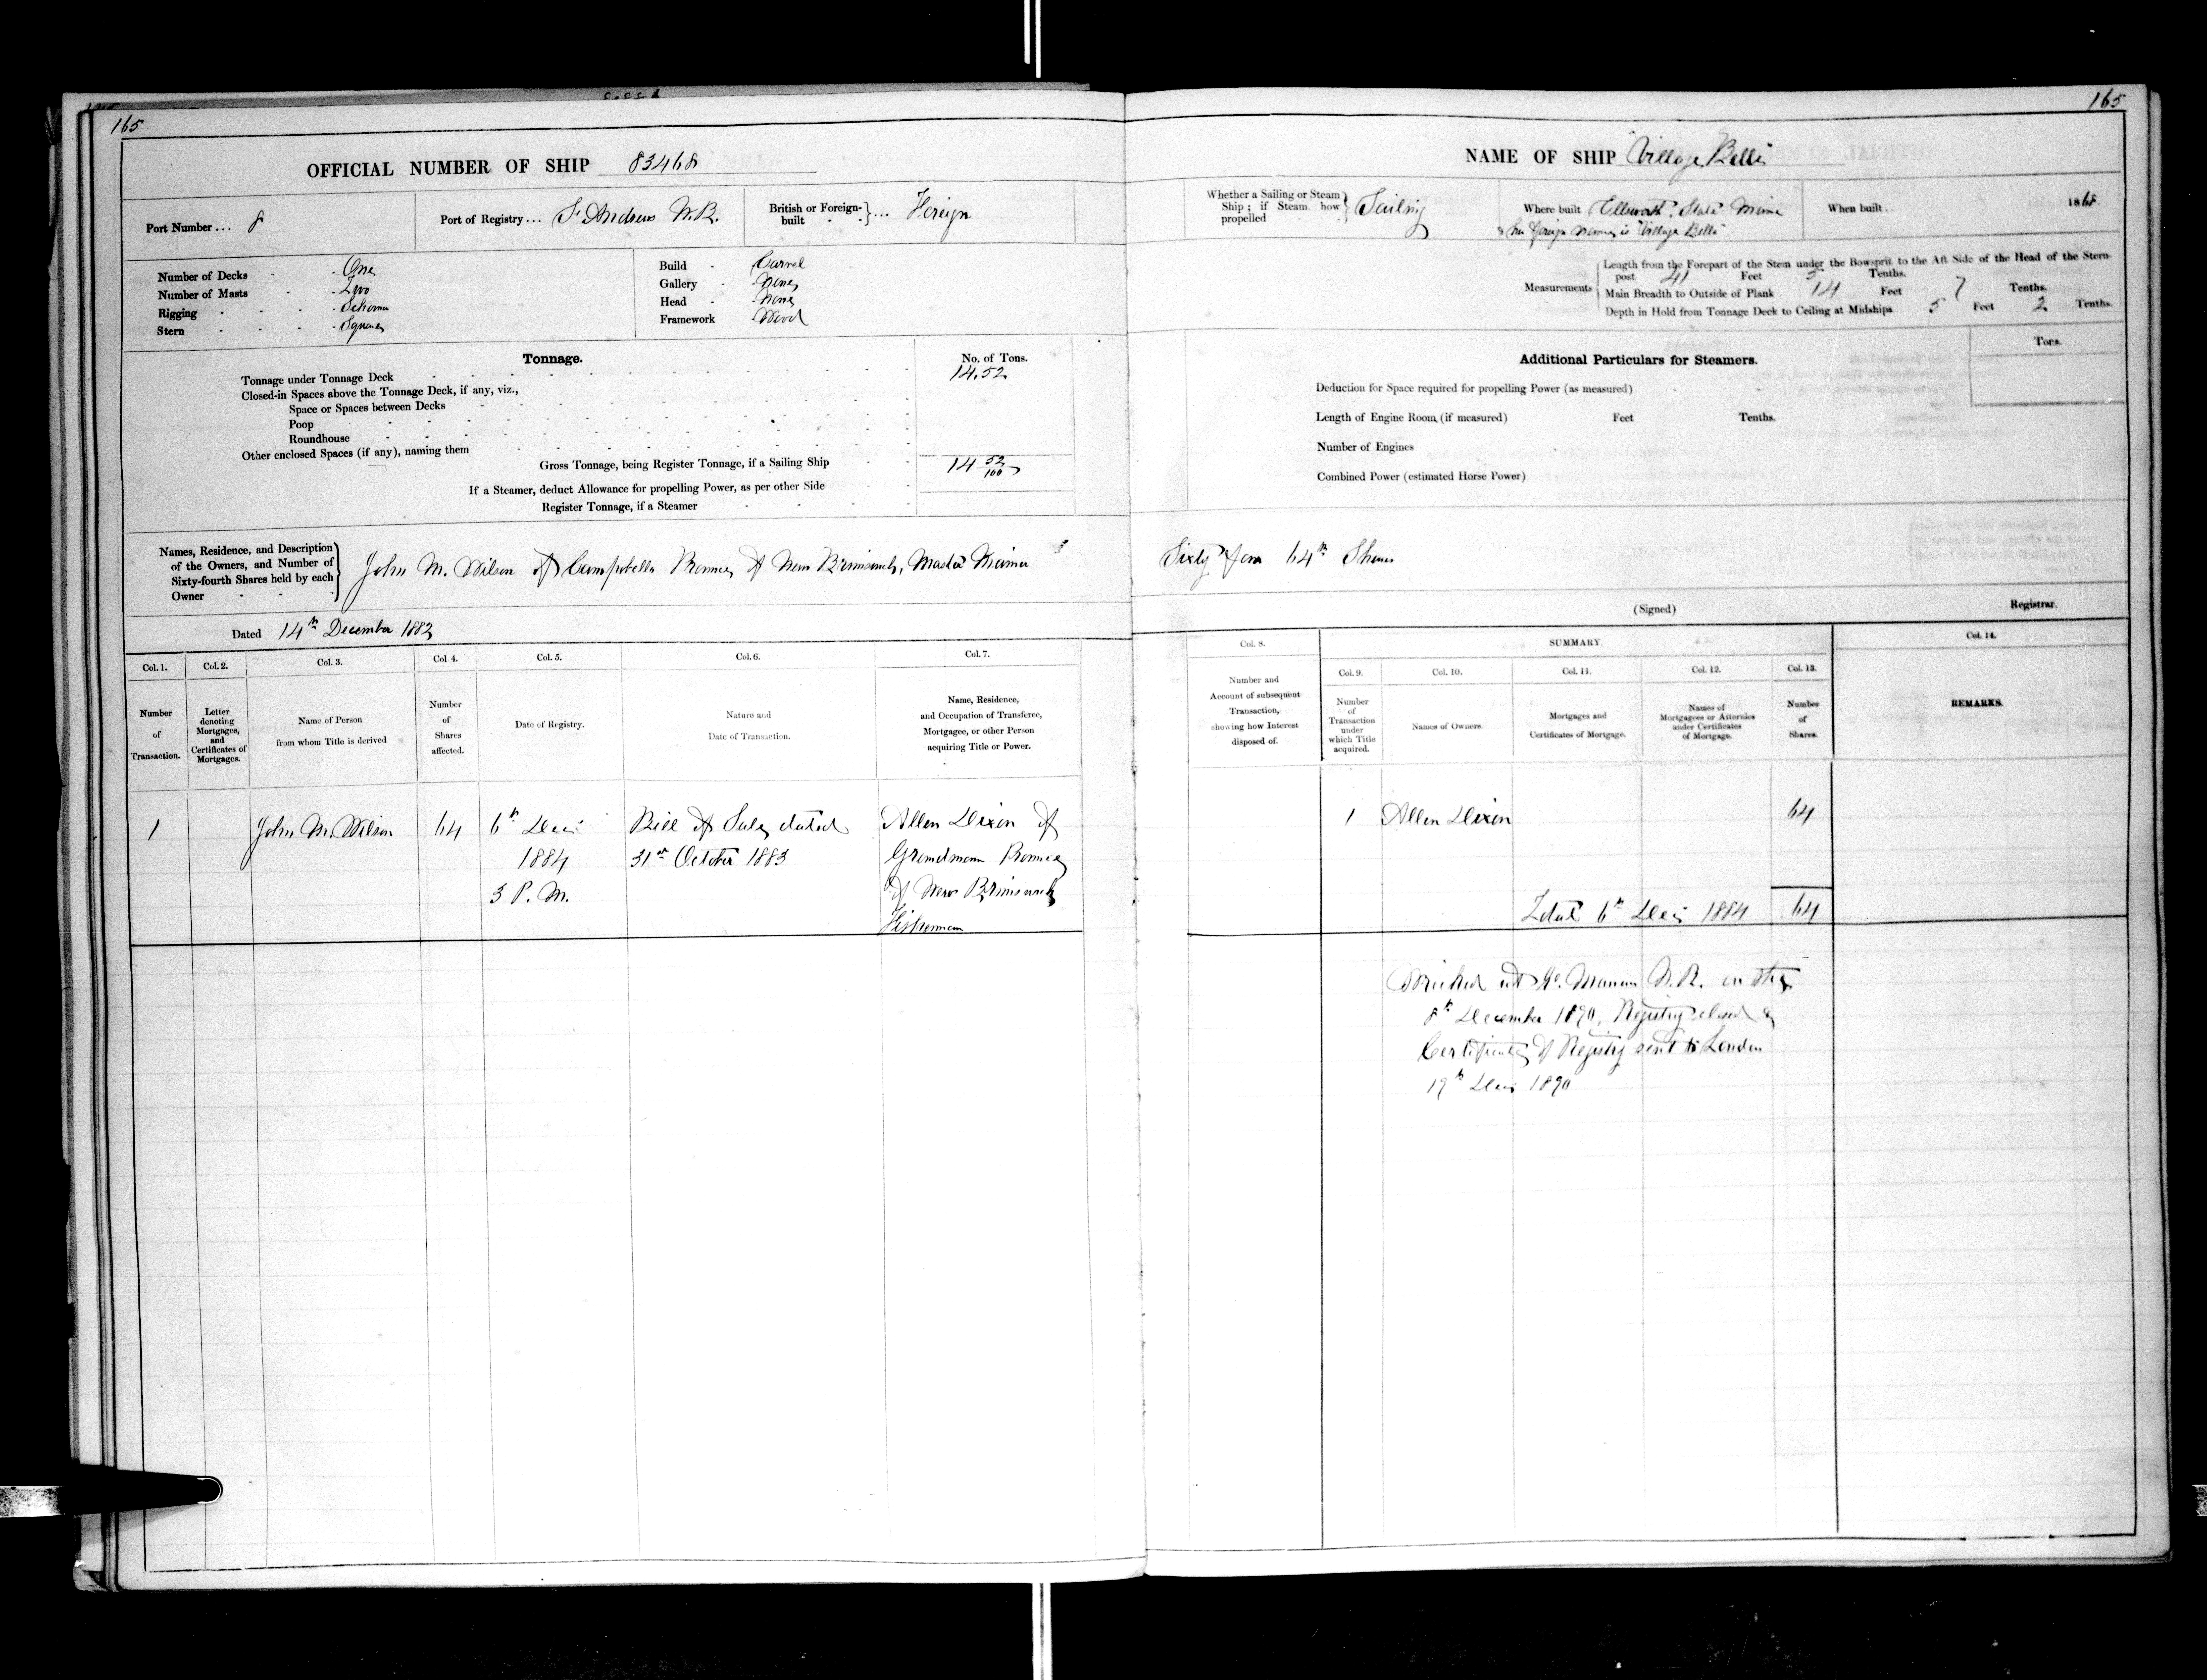 165
OFFICIAL NUMBER OF SHIP 83468
Port Number ... 8
Port of Registry ... St Andrews N.B.
British or Foreign-built ... Foreign
Number of Decks - One
Number of Masts - Two
Rigging - Schooner
Stern - Square
Build - Carvel
Gallery - None
Head - None
Framework - Wood
Tonnage.
No. of Tons.
Tonnage under Tonnage Deck 14.52
Closed-in Spaces above the Tonnage Deck, if any, viz.,
Space or Spaces between Decks
Poop
Roundhouse
Other enclosed Spaces (if any), naming them
Gross Tonnage, being Register Tonnage, if a Sailing Ship 14 52/100
If a Steamer, deduct Allowance for propelling Power, as per other Side
Register Tonnage, if a Steamer
Names, Residence, and Description
of the Owners, and Number of
Sixty-fourth Shares held by each
Owner
John M. Wilson of Campobello Province of New Brunswick, Master Mariner
Dated 14th December 1882
Col. 1.
Number
of
Transaction.
Col. 2.
Letter
denoting
Mortgages,
and
Certificates of
Mortgages.
Col. 3.
Name of Person
from whom Title is derived
Col 4.
Number
of
Shares
affected.
Col. 5.
Date of Registry.
Col. 6.
Nature and
Date of Transaction.
Col. 7.
Name, Residence,
and Occupation of Transferee,
Mortgagee, or other Person
acquiring Title or Power.
1 John M. Wilson 64 6th Decr Bill of Sale dated Allen Dixon of
1884 31st October 1883 Grandmanan Province
3 P.M. of New Brunswick
Fisherman
165
NAME OF SHIP "Village Belle"
Whether a Sailing or Steam
Ship; if Steam how
propelled
Sailing
Where built Ellsworth, State Maine
& her foreign name is "Village Belle"
When built .. 1868
Measurements
Length from the Forepart of the Stem under the Bowsprit to the Aft Side of the Head of the Stern-
post 41 Feet 5 Tenths.
Main Breadth to Outside of Plank 14 Feet 7 Tenths.
Depth in Hold from Tonnage Deck to Ceiling at Midships 5 Feet 2 Tenths.
Additional Particulars for Steamers.
Tons.
Deduction for Space required for propelling Power (as measured)
Length of Engine Room (if measured) Feet Tenths.
Number of Engines
Combined Power (estimated Horse Power)
Sixty four 64th Shares
(Signed) Registrar.
Col. 8.
Number and
Account of subsequent
Transaction,
showing how Interest
disposed of.
SUMMARY.
Col. 9.
Number
of
Transaction
under
which Title
acquired.
Col. 10.
Names of Owners.
Col. 11.
Mortgages and
Certificates of Mortgage.
Col. 12.
Names of
Mortgagees or Attornies
under Certificates
of Mortgage.
Col. 13.
Number
of
Shares.
Col. 14.
REMARKS.
1 Allen Dixon 64
Total 6th Decr 1884 64
Wrecked at Gd. Manan N.B. on the
8th December 1890, Registry closed &
Certificate of Registry sent to London
19th Decr 1890